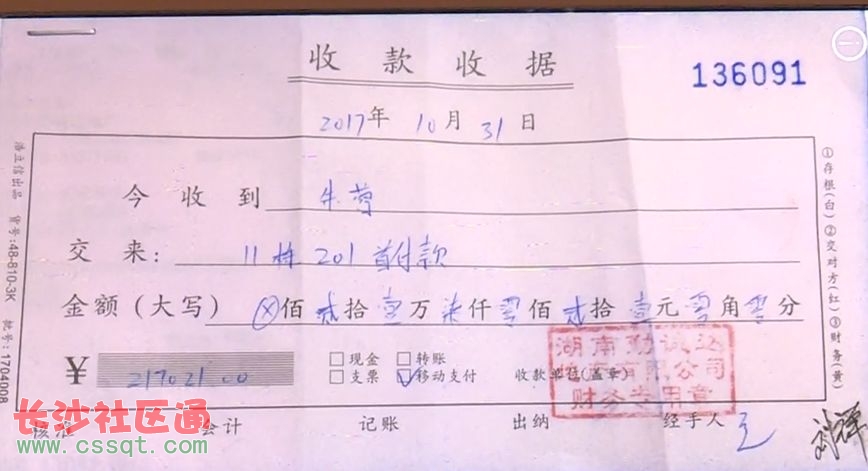 收款收据
136091
2017年 10月 31日
今收到 牛
交来： 11栋 201 首付款
金额（大写） ⊗佰 贰拾 壹万 柒仟 零佰 贰拾 壹元 零角 零分
¥ 217021.00
□现金 □转账
□支票 ☑移动支付
收款单位(盖章)
湖南勤诚达
有限公司
财务专用章
核准 会计 记账 出纳 经手人
潘立信出品 货号:48-810-3K 批号:1704008
①存根(白)②交对方(红)③财务(黄)
长沙社区通
www.cssqt.com